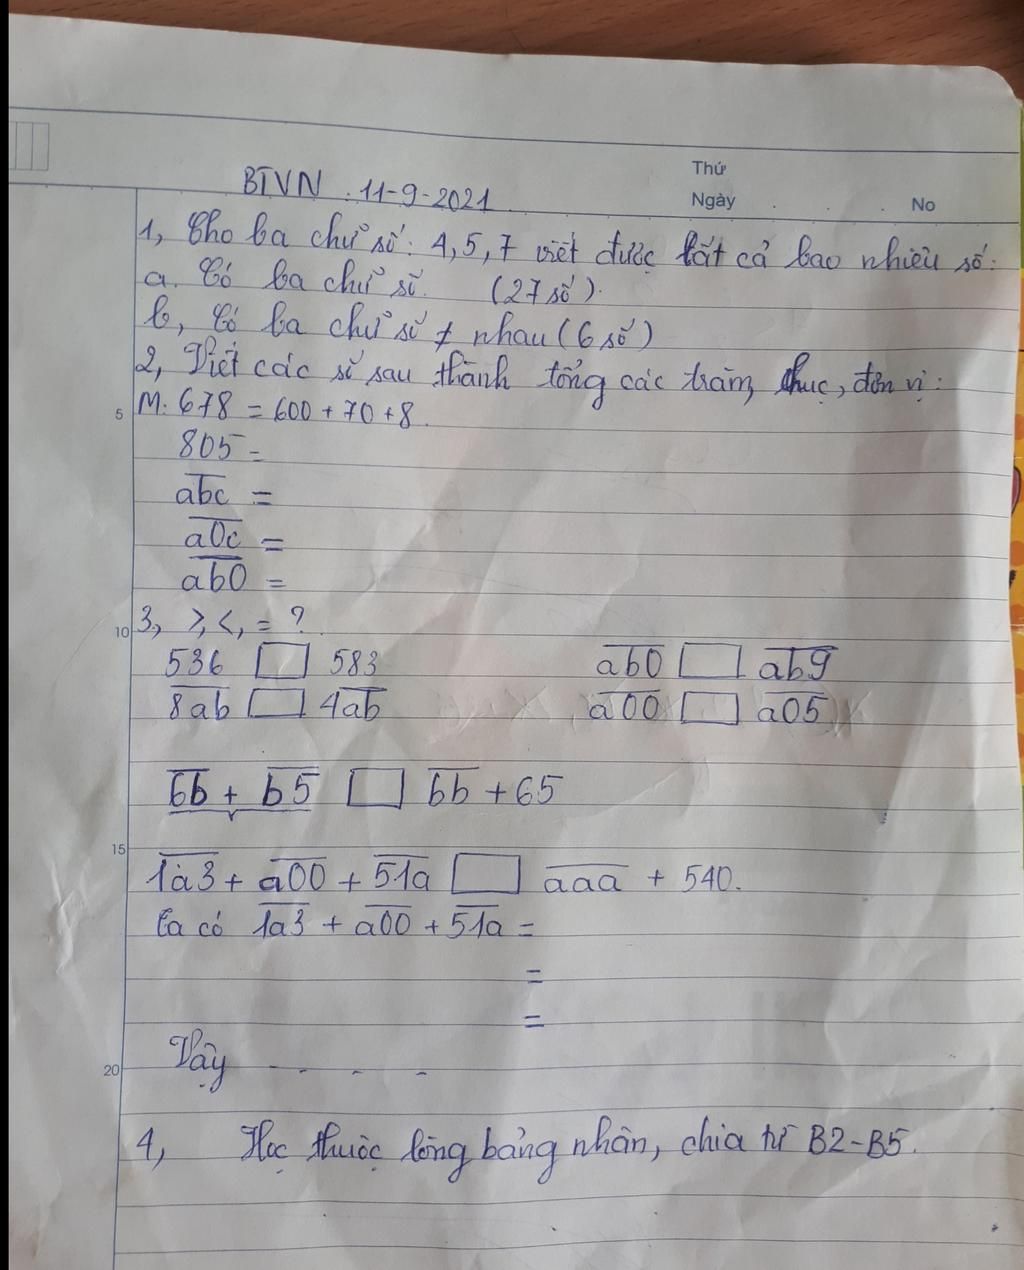 Thứ
Ngày . . . No
BTVN . 11-9-2021
1, Cho ba chữ số: 4, 5, 7 viết được tất cả bao nhiêu số:
a. Có ba chữ số. (27 số).
b, Có ba chữ số ≠ nhau (6 số)
2, Viết các số sau thành tổng các trăm, chục, đơn vị:
5 M: 678 = 600 + 70 + 8.
805 =
a̅b̅c̅ =
a̅0̅c̅ =
a̅b̅0̅ =
10 3, >, <, = ?
536 □ 583 a̅b̅0̅ □ a̅b̅9̅
8̅a̅b̅ □ 4̅a̅b̅ a̅0̅0̅ □ a̅0̅5̅
6̅b̅ + b̅5̅ □ b̅b̅ + 65
15
1̅a̅3̅ + a̅0̅0̅ + 5̅1̅a̅ □ a̅a̅a̅ + 540.
Ta có 1̅a̅3̅ + a̅0̅0̅ + 5̅1̅a̅ =
=
=
20 Vậy - - - -
4, Học thuộc lòng bảng nhân, chia từ B2-B5.